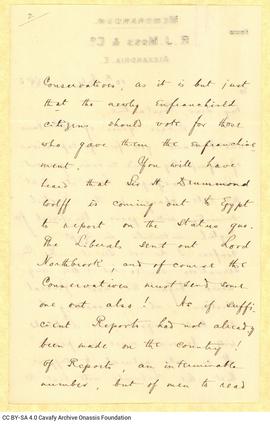 2
MEMORANDUM.
R. J. Moss & Co
ALEXANDRIA
Conservatives, as it is but just
that the newly enfranchised
citizens should vote for those
who gave them the enfranchise
ment. You will have
heard that Sir H. Drummond
Wolff is coming out to Egypt
to report on the status quo.
The Liberals sent out Lord
Northbrook, and of course the
Conservatives must send some
one out also! As if suffi-
cient Reports had not already
been made on the country!
Of Reports, an interminable
number, but of men to read
CC BY-SA 4.0 Cavafy Archive Onassis Foundation